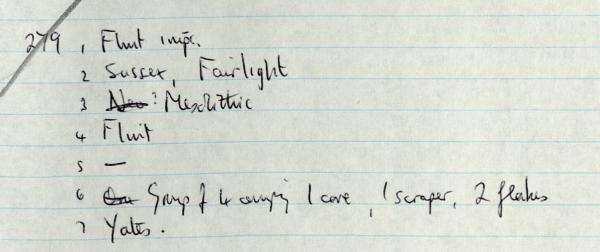 279 1 Flint impl.
2 Sussex, Fairlight
3 Neo ? Mesolithic
4 Flint
5 —
6 Group of 4 comprising 1 core, 1 scraper, 2 flakes
7 Yates.